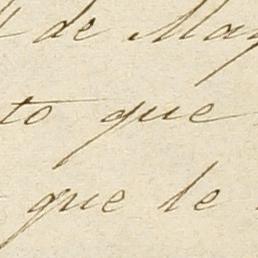 de May
to que
que le